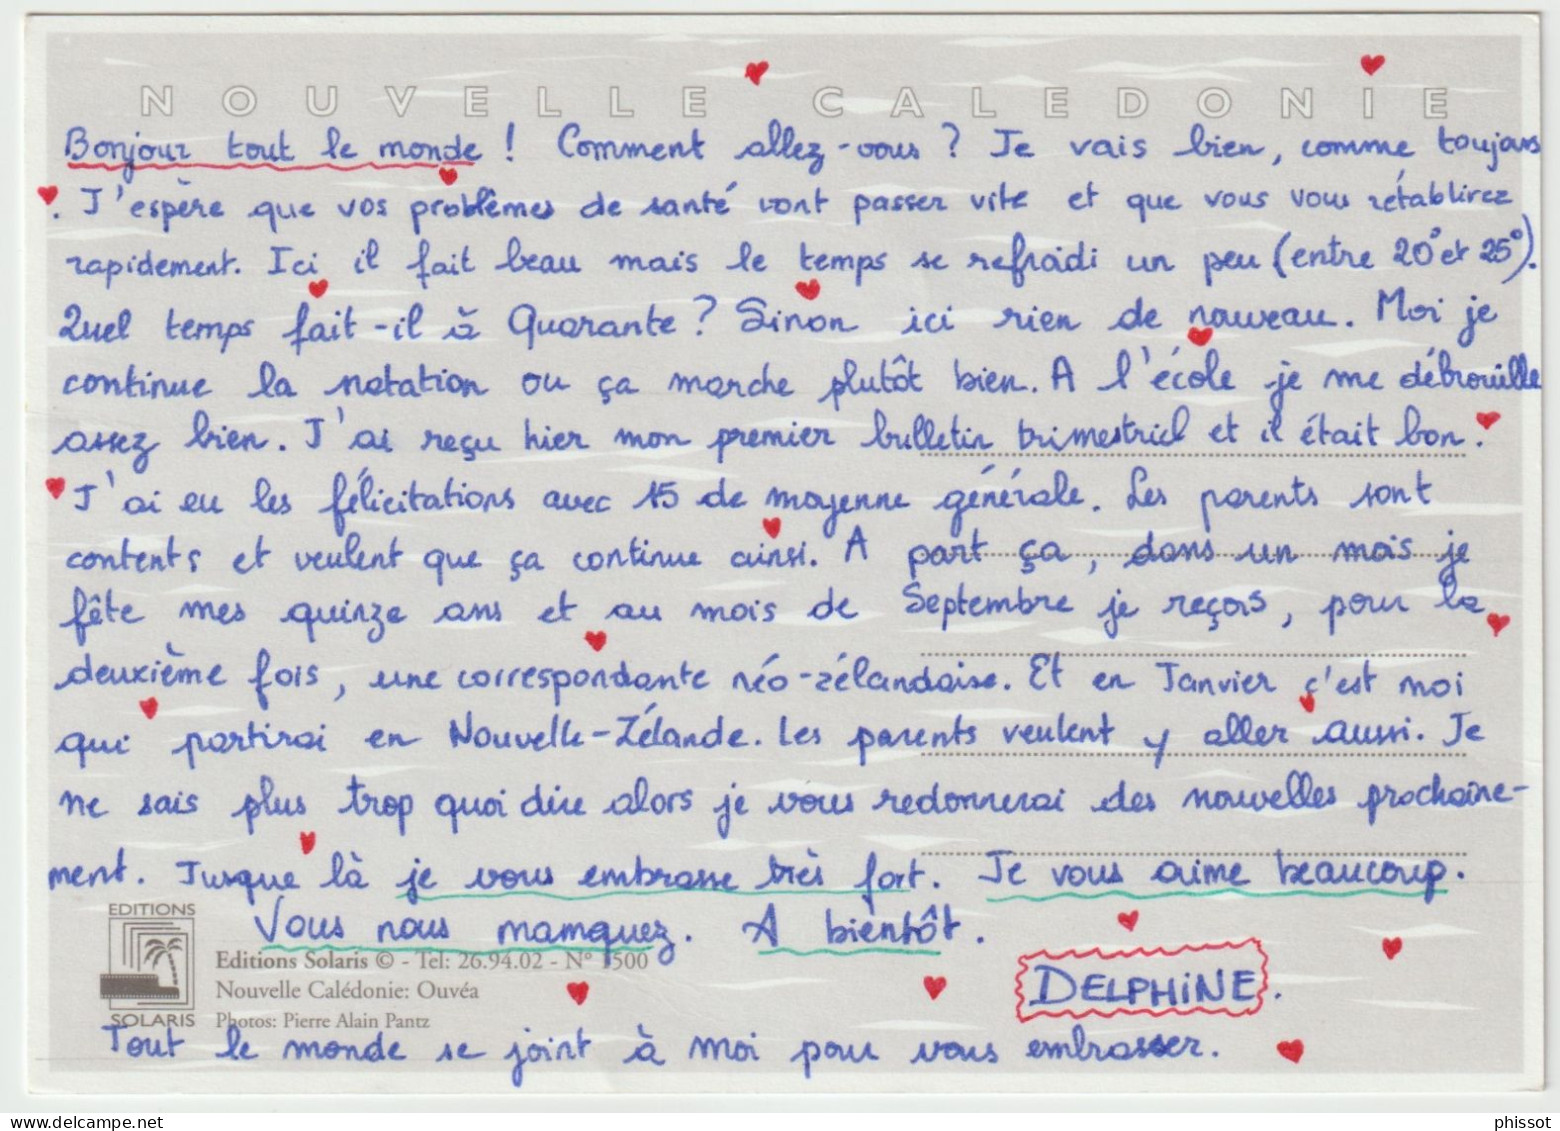 NOUVELLE CALEDONIE
Bonjour tout le monde ! Comment allez-vous ? Je vais bien, comme toujours
. J'espère que vos problèmes de santé vont passer vite et que vous vous rétablirez
rapidement. Ici il fait beau mais le temps se refroidi un peu (entre 20° et 25°).
Quel temps fait-il à Quarante ? Sinon ici rien de nouveau. Moi je
continue la natation ou ça marche plutôt bien. A l'école je me débrouille
assez bien. J'ai reçu hier mon premier bulletin trimestriel et il était bon.
J'ai eu les félicitations avec 15 de moyenne générale. Les parents sont
contents et veulent que ça continue ainsi. A part ça, dans un mois je
fête mes quinze ans et au mois de Septembre je reçois, pour la
deuxième fois, une correspondante néo-zélandaise. Et en Janvier c'est moi
qui partirai en Nouvelle-Zélande. Les parents veulent y aller aussi. Je
ne sais plus trop quoi dire alors je vous redonnerai des nouvelles prochaine-
ment. Jusque là je vous embrasse très fort. Je vous aime beaucoup.
Vous nous mamquez. A bientôt.
DELPHINE.
EDITIONS
SOLARIS
Editions Solaris © - Tel: 26.94.02 - N° 1500
Nouvelle Calédonie: Ouvéa
Photos: Pierre Alain Pantz
Tout le monde se joint à moi pour vous embrasser.
phissot